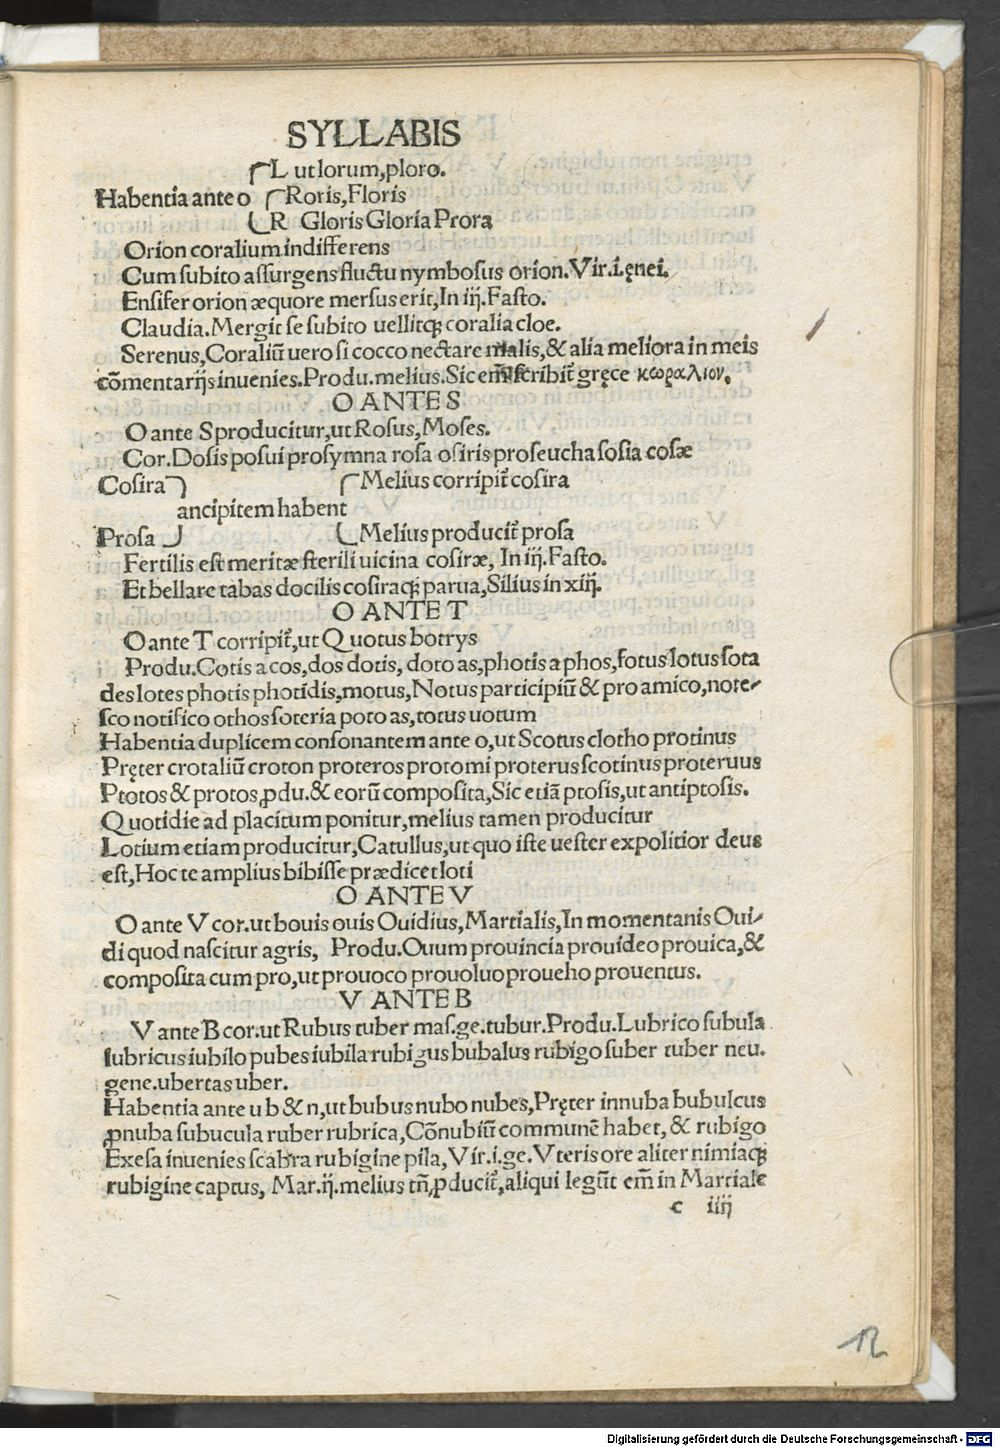 SYLLABIS
L ut lorum, ploro.
Habentia ante o Roris, Floris
R Gloris Gloria Prora
Orion coralium indifferens
Cum subito assurgens fluctu nymbosus orion. Vir. i. ęnei.
Ensifer orion æquore mersus erit, In iij. Fasto.
Claudia. Mergit se subito uellitq; coralia cloe.
Serenus, Coraliū uero si cocco nectare malis, & alia meliora in meis
cōmentarijs inuenies. Produ. melius. Sic em̄ scribit̄ gręce κωραλιον.
O ANTE S
O ante S producitur, ut Rosus, Moses.
Cor. Dosis posui prosymna rosa osiris proseucha sosia cosæ
Cosira Melius corripit̄ cosira
ancipitem habent
Prosa Melius producit̄ prosa
Fertilis est meritæ sterili uicina cosiræ, In iij. Fasto.
Et bellare tabas docilis cosiraq; parua, Silius in xiij.
O ANTE T
O ante T corripit̄, ut Quotus botrys
Produ. Cotis a cos, dos dotis, doto as, photis a phos, fotus lotus sota
des lotes photis photidis, motus, Notus participiū & pro amico, note-
sco notifico othos soteria poto as, totus uotum
Habentia duplicem consonantem ante o, ut Scotus clotho protinus
Pręter crotaliū croton proteros protomi proterus scotinus proteruus
Ptotos & protos, ꝓdu. & eorū composita, Sic etiā ptosis, ut antiptosis.
Quotidie ad placitum ponitur, melius tamen producitur
Lotium etiam producitur, Catullus, ut quo iste uester expolitior deus
est, Hoc te amplius bibisse prædicet loti
O ANTE V
O ante V cor. ut bouis ouis Ouidius, Martialis, In momentanis Oui-
di quod nascitur agris, Produ. Ouum prouincia prouideo prouica, &
composita cum pro, ut prouoco prouoluo proueho prouentus.
V ANTE B
V ante B cor. ut Rubus tuber mas. ge. tubur. Produ. Lubrico subula
lubricus iubilo pubes iubila rubigus bubalus rubigo suber tuber neu.
gene. ubertas uber.
Habentia ante u b & n, ut bubus nubo nubes, Pręter innuba bubulcus
ꝓnuba subucula ruber rubrica, Cōnubiū communē habet, & rubigo
Exesa inuenies scabra rubigine pila, Vir. i. ge. Vteris ore aliter nimiaq;
rubigine captus, Mar. ij. melius tn̄, ꝓducit̄, aliqui legūt em̄ in Martiale
c iiij
12
Digitalisierung gefördert durch die Deutsche Forschungsgemeinschaft - DFG